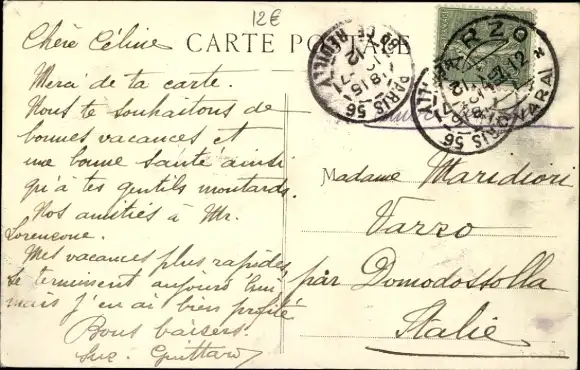 12€
CARTE POSTALE
Chère Céline
Merci de ta carte.
Nous te souhaitons de
bonnes vacances et
une bonne santé ainsi
qu'à tes gentils moutards.
Nos amitiés à Mr.
Lorençone.
Mes vacances plus rapides,
se terminent aujourd'hui
mais j'en ai bien profité
Bons baisers.
Suz. Guittard
PARIS 56
Bd DE REUILLY
VARZO
PARIS 56
Madame Maridiori
Varzo
par Domodossolla
Italie